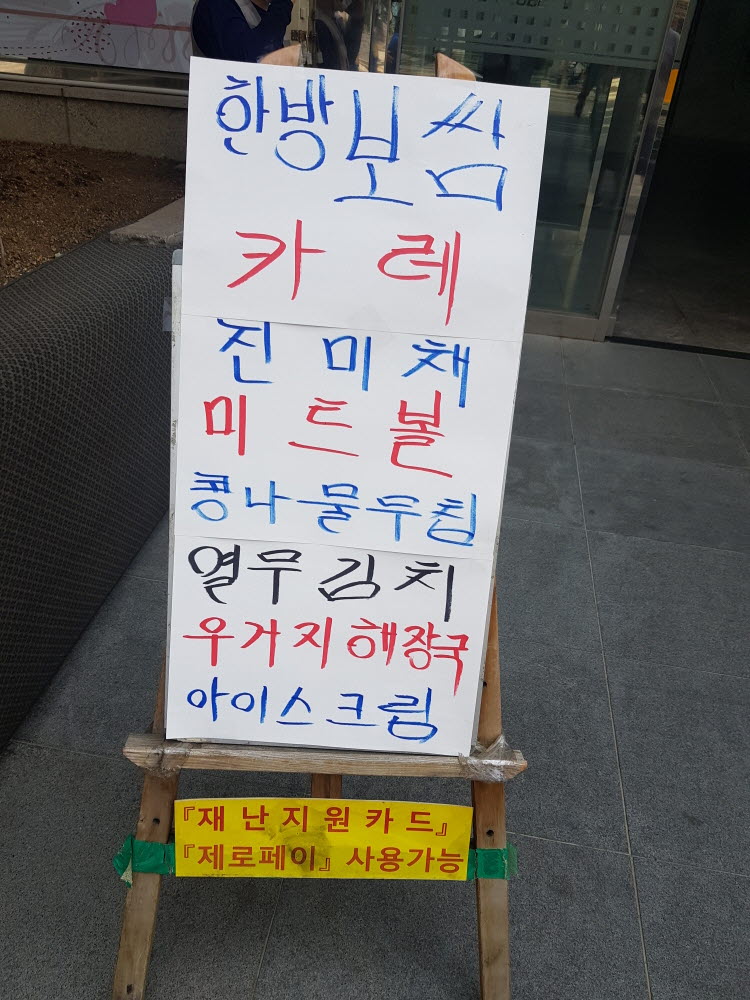 한방보쌈
카레
진미채
미트볼
콩나물무침
열무김치
우거지해장국
아이스크림
『재난지원카드』
『제로페이』 사용가능